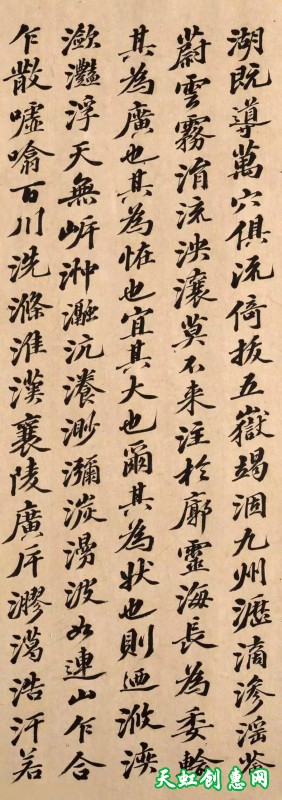 湖既導萬穴俱流倚拔五嶽竭涸九州瀝滴滲淫薈
蔚雲霧涓流泱瀼莫不来注於廓靈海長為委輸
其為廣也其為恠也宜其大也爾其為狀也則迺浟湙
瀲灩浮天無岍沖瀜沆瀁渺瀰湠漫波如連山乍合
乍散噓噏百川洗滌淮漢襄陵廣斥漻㵧浩汗若
天虹创惠网